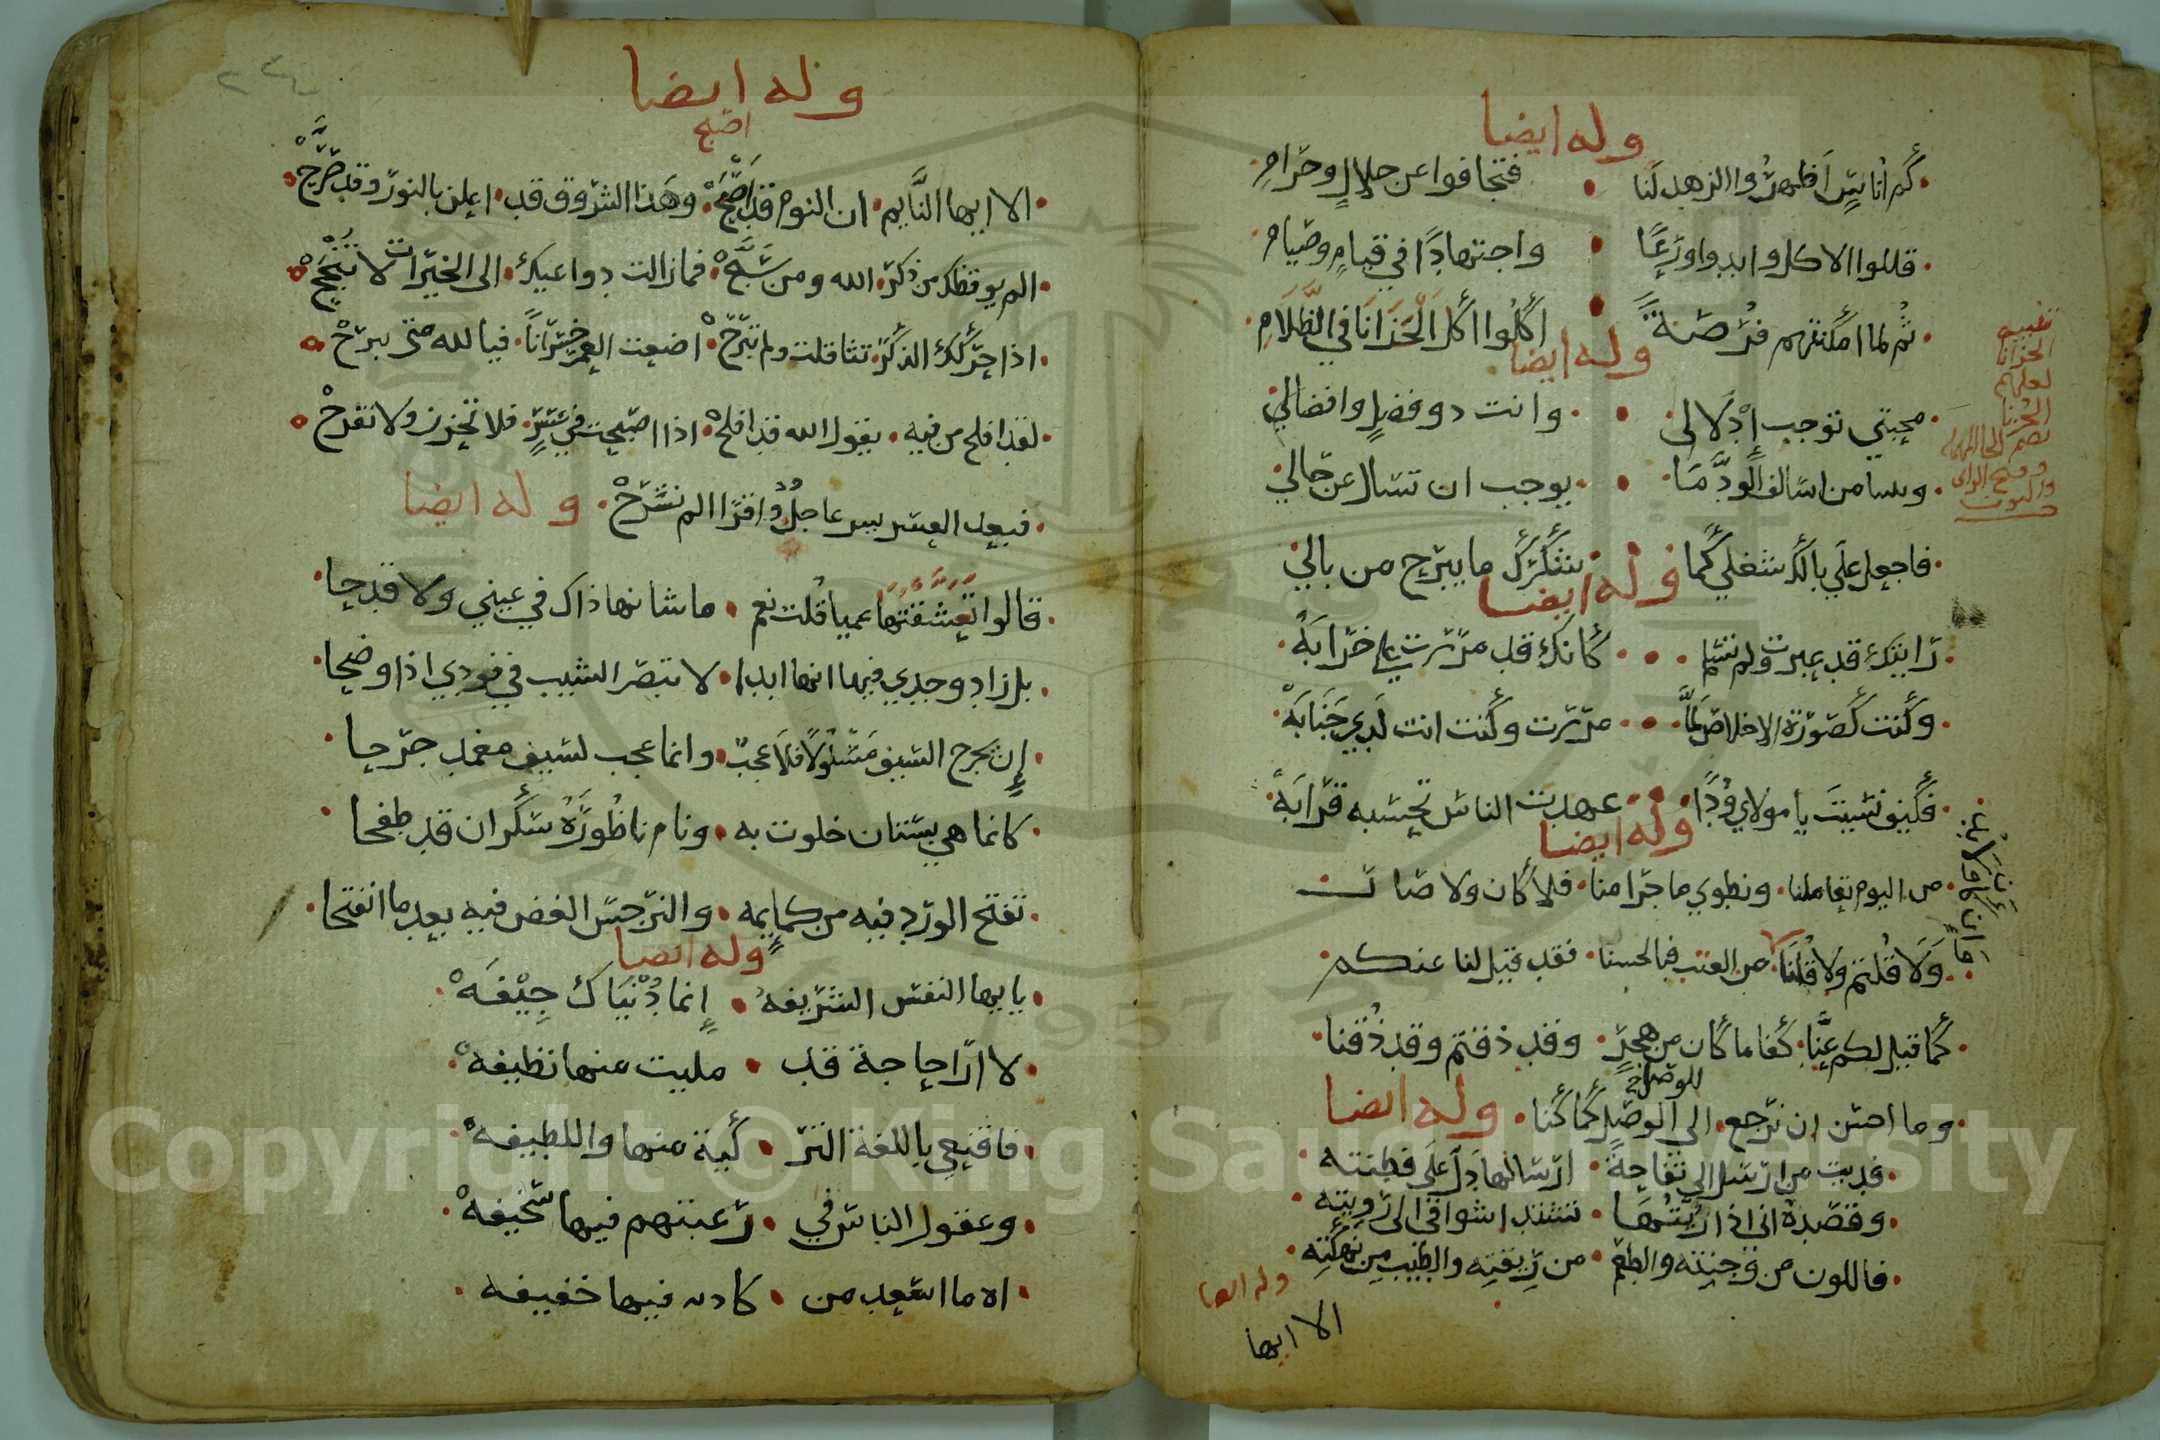 وله ايضا
كم اناسٍ اظهروا الزهد لنا • فتجافوا عن حلالٍ وحرامِ
قللوا الاكل وابدوا ورعًا • واجتهادًا في قيامٍ وصيام
ثم لما امكنتهم فرصةٌ • اكلوا اكل الحزانَا في الظلامِ
وله ايضا
محبتي توجب إدلالى • وانت ذو فضلٍ وافضالي
وبيننا من سالف الودّ ما • يوجب ان تسال عن حالي
فاجعل على بالك شغلي كما • شكرك ما يبرح من بالي
وله ايضا
رايتك قد عبرت ولم تسلم • كانك قد مررت على خرابَهْ
وكنت كصورة الاخلاص لمّا • مررت وكنت انت لدي جنابَهْ
فكيف نسيتَ يا مولاي ودًّا • عهدت الناس تحسبه قرابَهْ
وله ايضا
من اليوم تعاملنا • ونطوي ما جرا منا • فلا كان ولا صار
ولا قلتم ولا قلنا • من العتب فبالحسنا • فقد قيل لنا عنكم
كما قيل لكم عنّا • كفا ما كان من هجرٍ • وقد ذقتم وقد ذقنا
للوصل
وما احسن ان نرجع • الى الوصل كما كنا • وله ايضا
فديت من ارسل الي تفاحةً • ارسالها دل على فطنته
وقصده اني اذا • تشتد اشواقي الى رويته
فاللون من وجنته والطعم • من ريقته والطيب من نكهته
وله ايضا
الا ايها
تنبيه
الحزانا
لعلهم
الحزنا
بضم الحا المهملة
وفتح الزاى
والنون
وله ايضا
اصبح
الا ايها النَّايم • ان النوم قد اصبحْ • وهذا الشروق قد • اعلن بالنور وقد صرّحْ
الم يوقظك من ذكر • الله ومن سبّحْ • فما زالت دواعيك • الى الخيرات لا تنجحْ
اذا حرّكك الذكر • تثاقلت ولم تبرحْ • اضعت العمر خسرانًا • فيا لله متى تربحْ
لقد افلح من فيه • يقول الله قد افلحْ • اذا اصبحت في عسرٍ • فلا تحزن ولا تفرحْ
فبعد العسر يسر عاجلٌ واقرا الم نشرحْ • وله ايضا
قالوا تعشقتها عميا قلت نعم • ما شانها ذاك في عيني ولا قدحا
بل زاد وجدي فيها انها ابدا • لا تبصر الشيب في فودي اذا وضحا
إن يجرح السيف مسلولًا فلا عجبٌ • وانما عجب لسيف مغمد جرحا
كانما هي بستنان خلوت به • ونام ناظوره سكران قد طفحا
تفتح الورد فيه من كمايمه • والنرجس الغض فيه بعد ما انفتحا
وله ايضا
يايها النفس الشريفهْ • إنما دُنْيَاك جِيْفَهْ
لا ارا حاجة قد • مليت منها نظيفهْ
فاقنعي باللغة النزر • كية منها واللطيفهْ
وعقول الناس في • رغبتهم فيها سخيفهْ
اه ما اسعد من • كاره فيها خفيفه